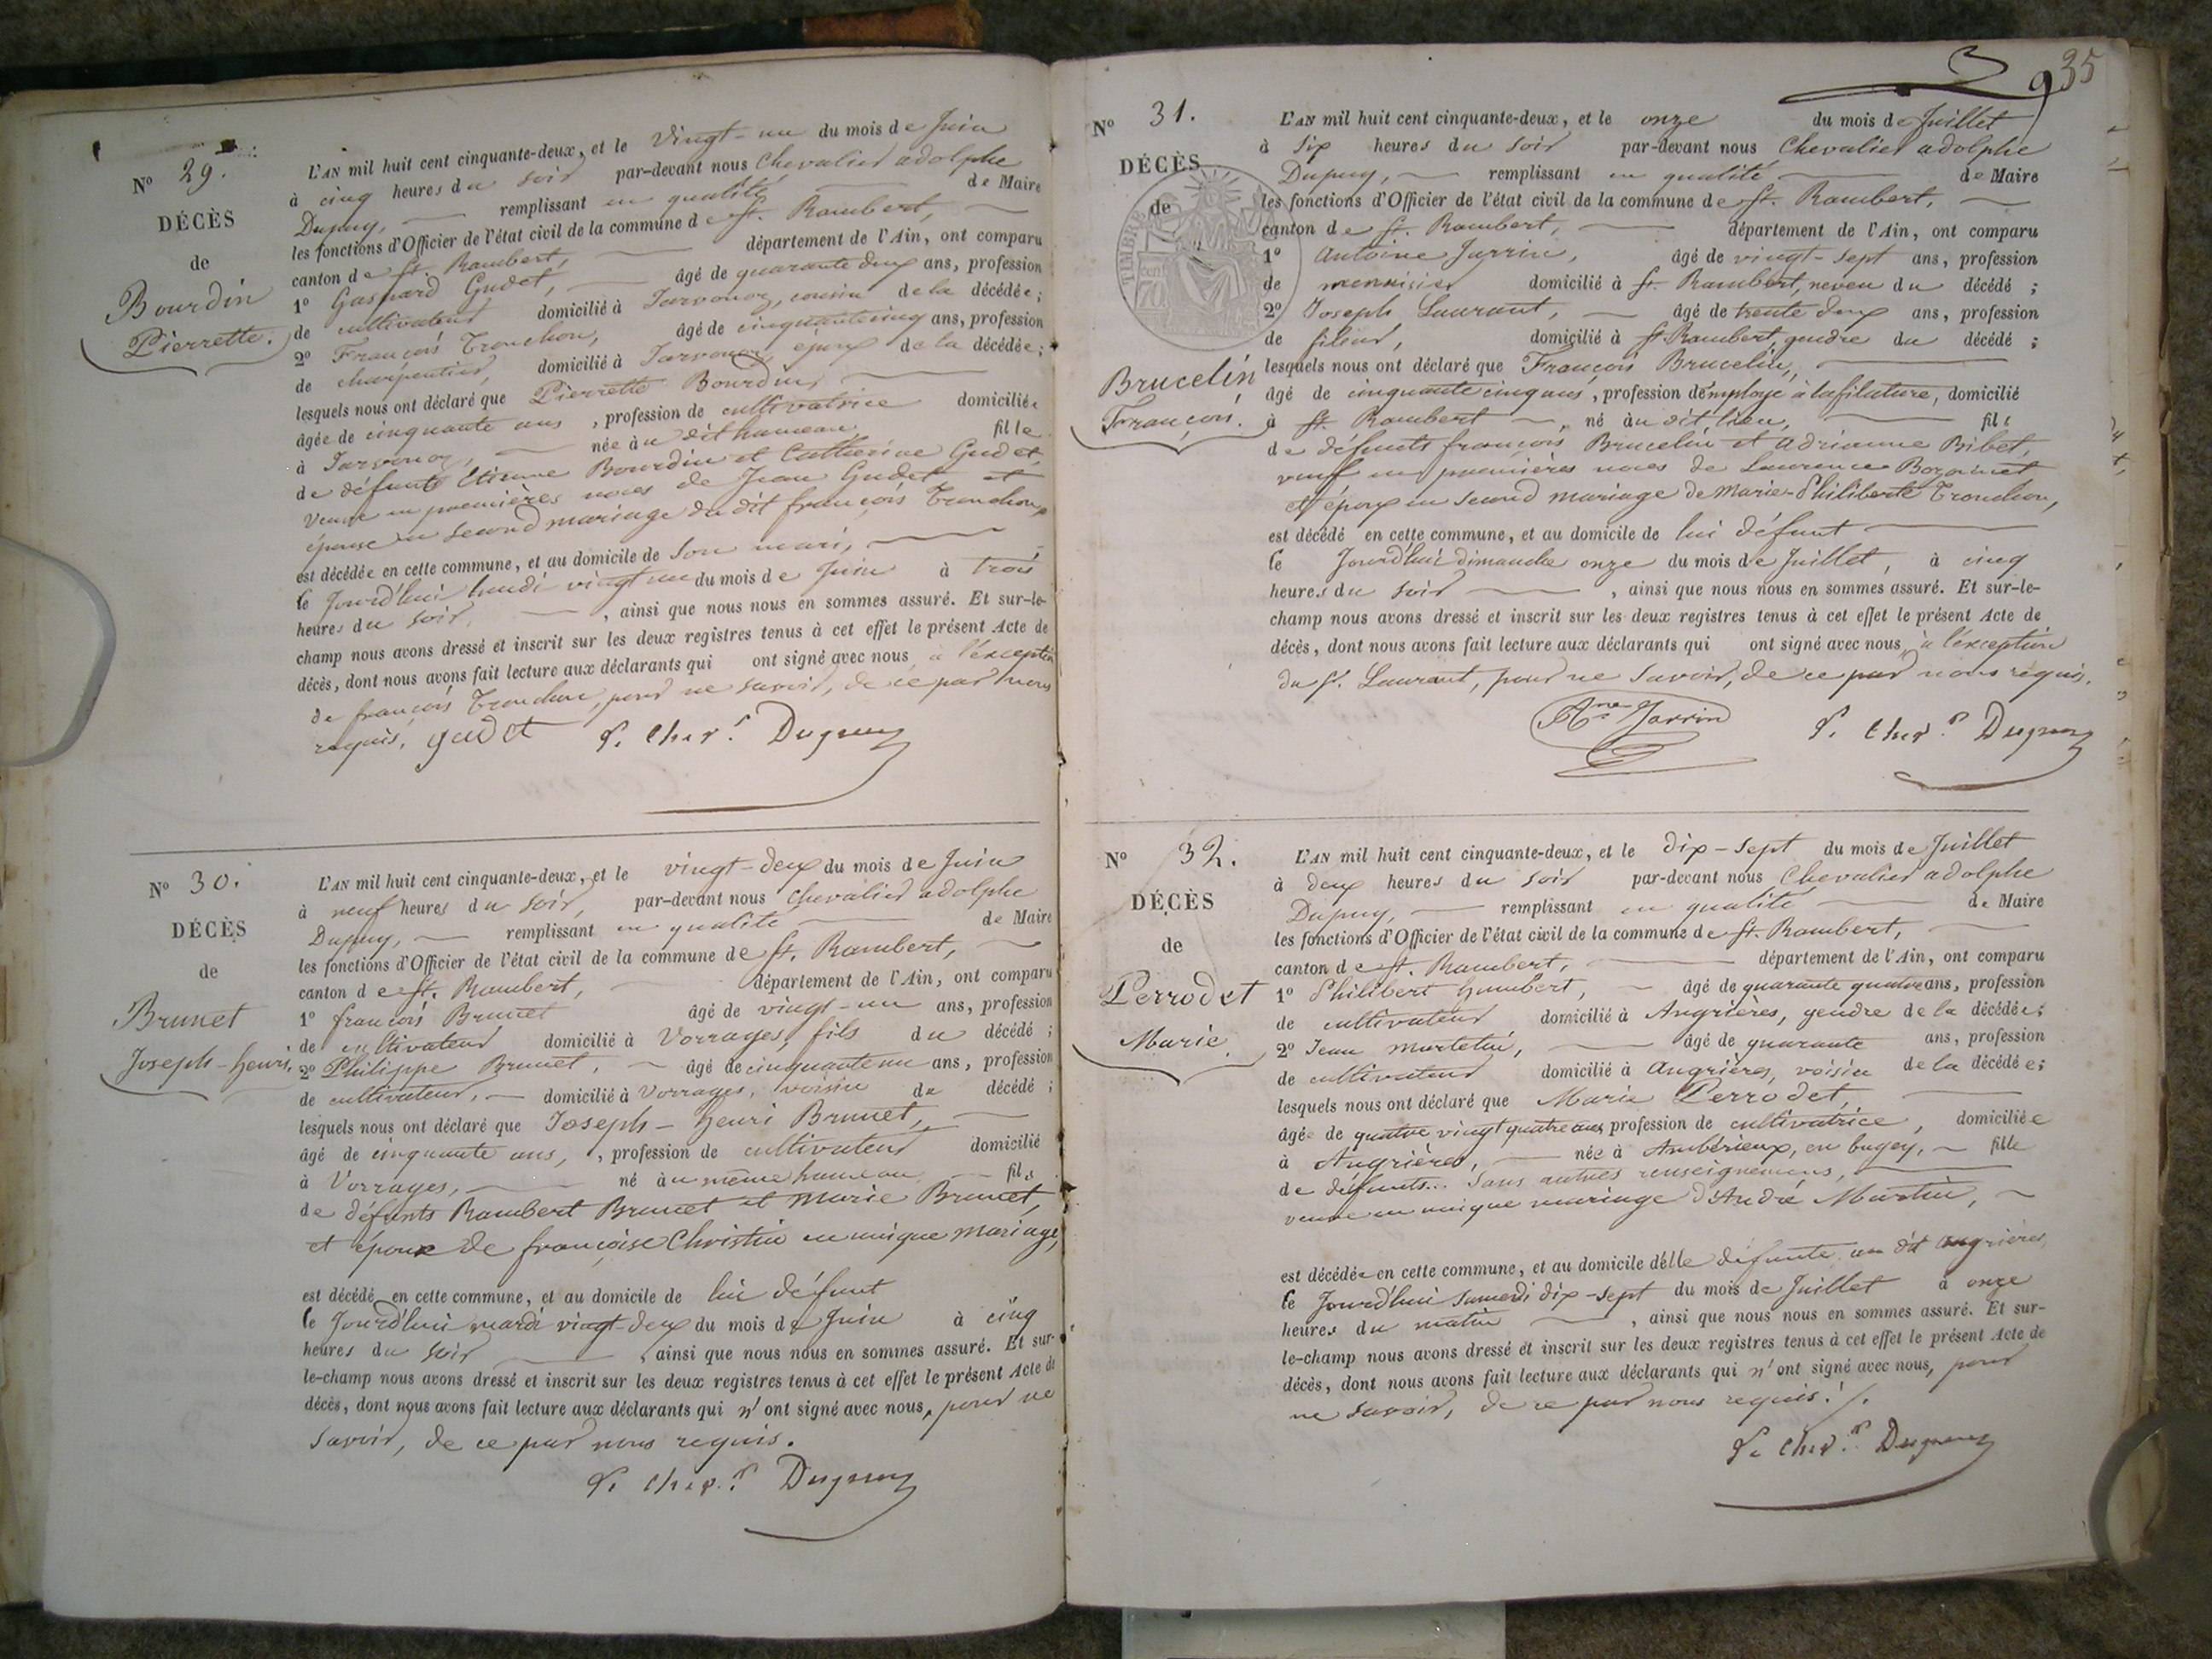 Nº 29.
DÉCÈS
de
Bourdin
Pierrette.
L'AN mil huit cent cinquante-deux, et le vingt-un du mois de Juin
à cinq heures du soir par-devant nous Chevalier adolphe
Dupuy, remplissant en qualité de Maire
les fonctions d'Officier de l'état civil de la commune de St. Rambert,
canton de St. Rambert, département de l'Ain, ont comparu
1º Gaspard Gudet, âgé de quarante deux ans, profession
de cultivateur domicilié à cousin de la décédée;
2º François Tronchon, âgé de cinquante cinq ans, profession
de charpentier, domicilié à époux de la décédée;
lesquels nous ont déclaré que Pierrette Bourdin,
âgée de cinquante ans , profession de cultivatrice domiciliée
à née au dit hameau fille
de défunts Etienne Bourdin et Catherine Gudet,
veuve en premières noces de Jean Gudet et
épouse en second mariage du dit françois Tronchon,
est décédée en cette commune, et au domicile de son mari,
le Jourd'hui lundi vingt un du mois de Juin à trois
heures du soir, , ainsi que nous nous en sommes assuré. Et sur-le-
champ nous avons dressé et inscrit sur les deux registres tenus à cet effet le présent Acte de
décès, dont nous avons fait lecture aux déclarants qui ont signé avec nous, à l'exception
de françois Tronchon, pour ne savoir, de ce par nous
requis. gudet Chev.r Dupuy
Nº 30.
DÉCÈS
de
Brunet
Joseph-henri.
L'AN mil huit cent cinquante-deux, et le vingt-deux du mois de Juin
à neuf heures du soir, par-devant nous Chevalier adolphe
Dupuy, remplissant en qualité de Maire
les fonctions d'Officier de l'état civil de la commune de St. Rambert,
canton de St. Rambert, département de l'Ain, ont comparu
1º françois Brunet âgé de vingt-un ans, profession
de cultivateur domicilié à Vorrages, fils du décédé ;
2º Philippe Brunet, âgé de cinquante un ans, profession
de cultivateur, domicilié à Vorrages, voisin du décédé ;
lesquels nous ont déclaré que Joseph-henri Brunet,
âgé de cinquante ans, , profession de cultivateur domicilié
à Vorrages, né au même hameau fils
de défunts Rambert Brunet et Marie Brunet,
et époux de françoise Christin en unique mariage,
est décédé en cette commune, et au domicile de lui défunt
le Jourd'hui mardi vingt-deux du mois de Juin à cinq
heures du soir , ainsi que nous nous en sommes assuré. Et sur-
le-champ nous avons dressé et inscrit sur les deux registres tenus à cet effet le présent Acte de
décès, dont nous avons fait lecture aux déclarants qui n'ont signé avec nous, pour ne
savoir, de ce par nous requis.
Chev.r Dupuy
35
Nº 31.
DÉCÈS
de
TIMBRE
Brucelin
François.
L'AN mil huit cent cinquante-deux, et le onze du mois de Juillet
à six heures du soir par-devant nous Chevalier adolphe
Dupuy, remplissant en qualité de Maire
les fonctions d'Officier de l'état civil de la commune de St. Rambert,
canton de St. Rambert, département de l'Ain, ont comparu
1º Antoine Jarrin, âgé de vingt-sept ans, profession
de menuisier domicilié à St. Rambert, neveu du décédé ;
2º Joseph Laurent, âgé de trente deux ans, profession
de fileur, domicilié à St. Rambert, gendre du décédé ;
lesquels nous ont déclaré que François Brucelin,
âgé de cinquante cinq ans , profession d'employé à la filature, domicilié
à St. Rambert , né au dit lieu, fils
de défunts françois Brucelin et adrianne Bibet,
veuf en premières noces de Laurence
et époux en second mariage de Marie-Philiberte Tronchon,
est décédé en cette commune, et au domicile de lui défunt
le Jourd'hui dimanche onze du mois de Juillet, à cinq
heures du soir , ainsi que nous nous en sommes assuré. Et sur-le-
champ nous avons dressé et inscrit sur les deux registres tenus à cet effet le présent Acte de
décès, dont nous avons fait lecture aux déclarants qui ont signé avec nous, à l'exception
du Sr. Laurent, pour ne savoir, de ce par nous requis.
Ane Jarrin Chev.r Dupuy
Nº 32.
DÉCÈS
de
Perrodet
Marie.
L'AN mil huit cent cinquante-deux, et le dix-sept du mois de Juillet
à deux heures du soir par-devant nous Chevalier adolphe
Dupuy, remplissant en qualité de Maire
les fonctions d'Officier de l'état civil de la commune de St. Rambert,
canton de St. Rambert, département de l'Ain, ont comparu
1º Philibert humbert, âgé de quarante quatre ans, profession
de cultivateur domicilié à Angrières, gendre de la décédée;
2º Jean martelin, âgé de quarante ans, profession
de cultivateur domicilié à Angrières, voisin de la décédée;
lesquels nous ont déclaré que Marie Perrodet,
âgée de quatre vingt quatre ans, profession de cultivatrice, domiciliée
à Angrières, née à Ambérieux, en bugey, fille
de défunts... sans autres renseignemens,
veuve en unique mariage d'André Martin,
est décédée en cette commune, et au domicile d'elle défunte au dit angrières
le Jourd'hui samedi dix-sept du mois de Juillet à onze
heures du matin , ainsi que nous nous en sommes assuré. Et sur-
le-champ nous avons dressé et inscrit sur les deux registres tenus à cet effet le présent Acte de
décès, dont nous avons fait lecture aux déclarants qui n'ont signé avec nous, pour
ne savoir, de ce par nous requis./.
Chev.r Dupuy